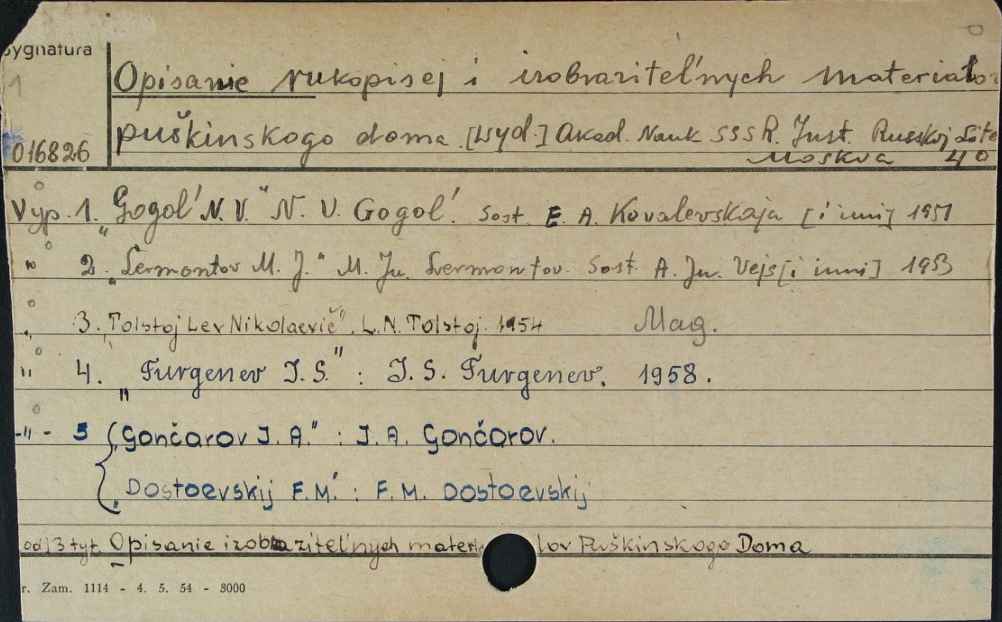 Sygnatura
1
016826
Opisanie rukopisej i izobrazitel'nych materialov
puškinskogo doma. [wyd.] Akad. Nauk SSSR. Inst. Russkoj Lite
Moskva 40
Vyp. 1. "Gogol' N. V." N. V. Gogol'. Sost. E. A. Kovalevskaja [i inni] 1951
" 2. "Lermontov M. J." M. Ju. Lermontov. Sost. A. Ju. Vejs [i inni] 1953
" 3. "Tolstoj Lev Nikolaevič". L. N. Tolstoj. 1954 Mag.
" 4. "Turgenev I. S." : I. S. Turgenev. 1958.
-"- 5 { "Gončarov I. A." : I. A. Gončarov.
Dostoevskij F. M. : F. M. Dostoevskij
od 3 tyt. Opisanie izobrazitel'nych materialov Puškinskogo Doma
r. Zam. 1114 - 4. 5. 54 - 8000